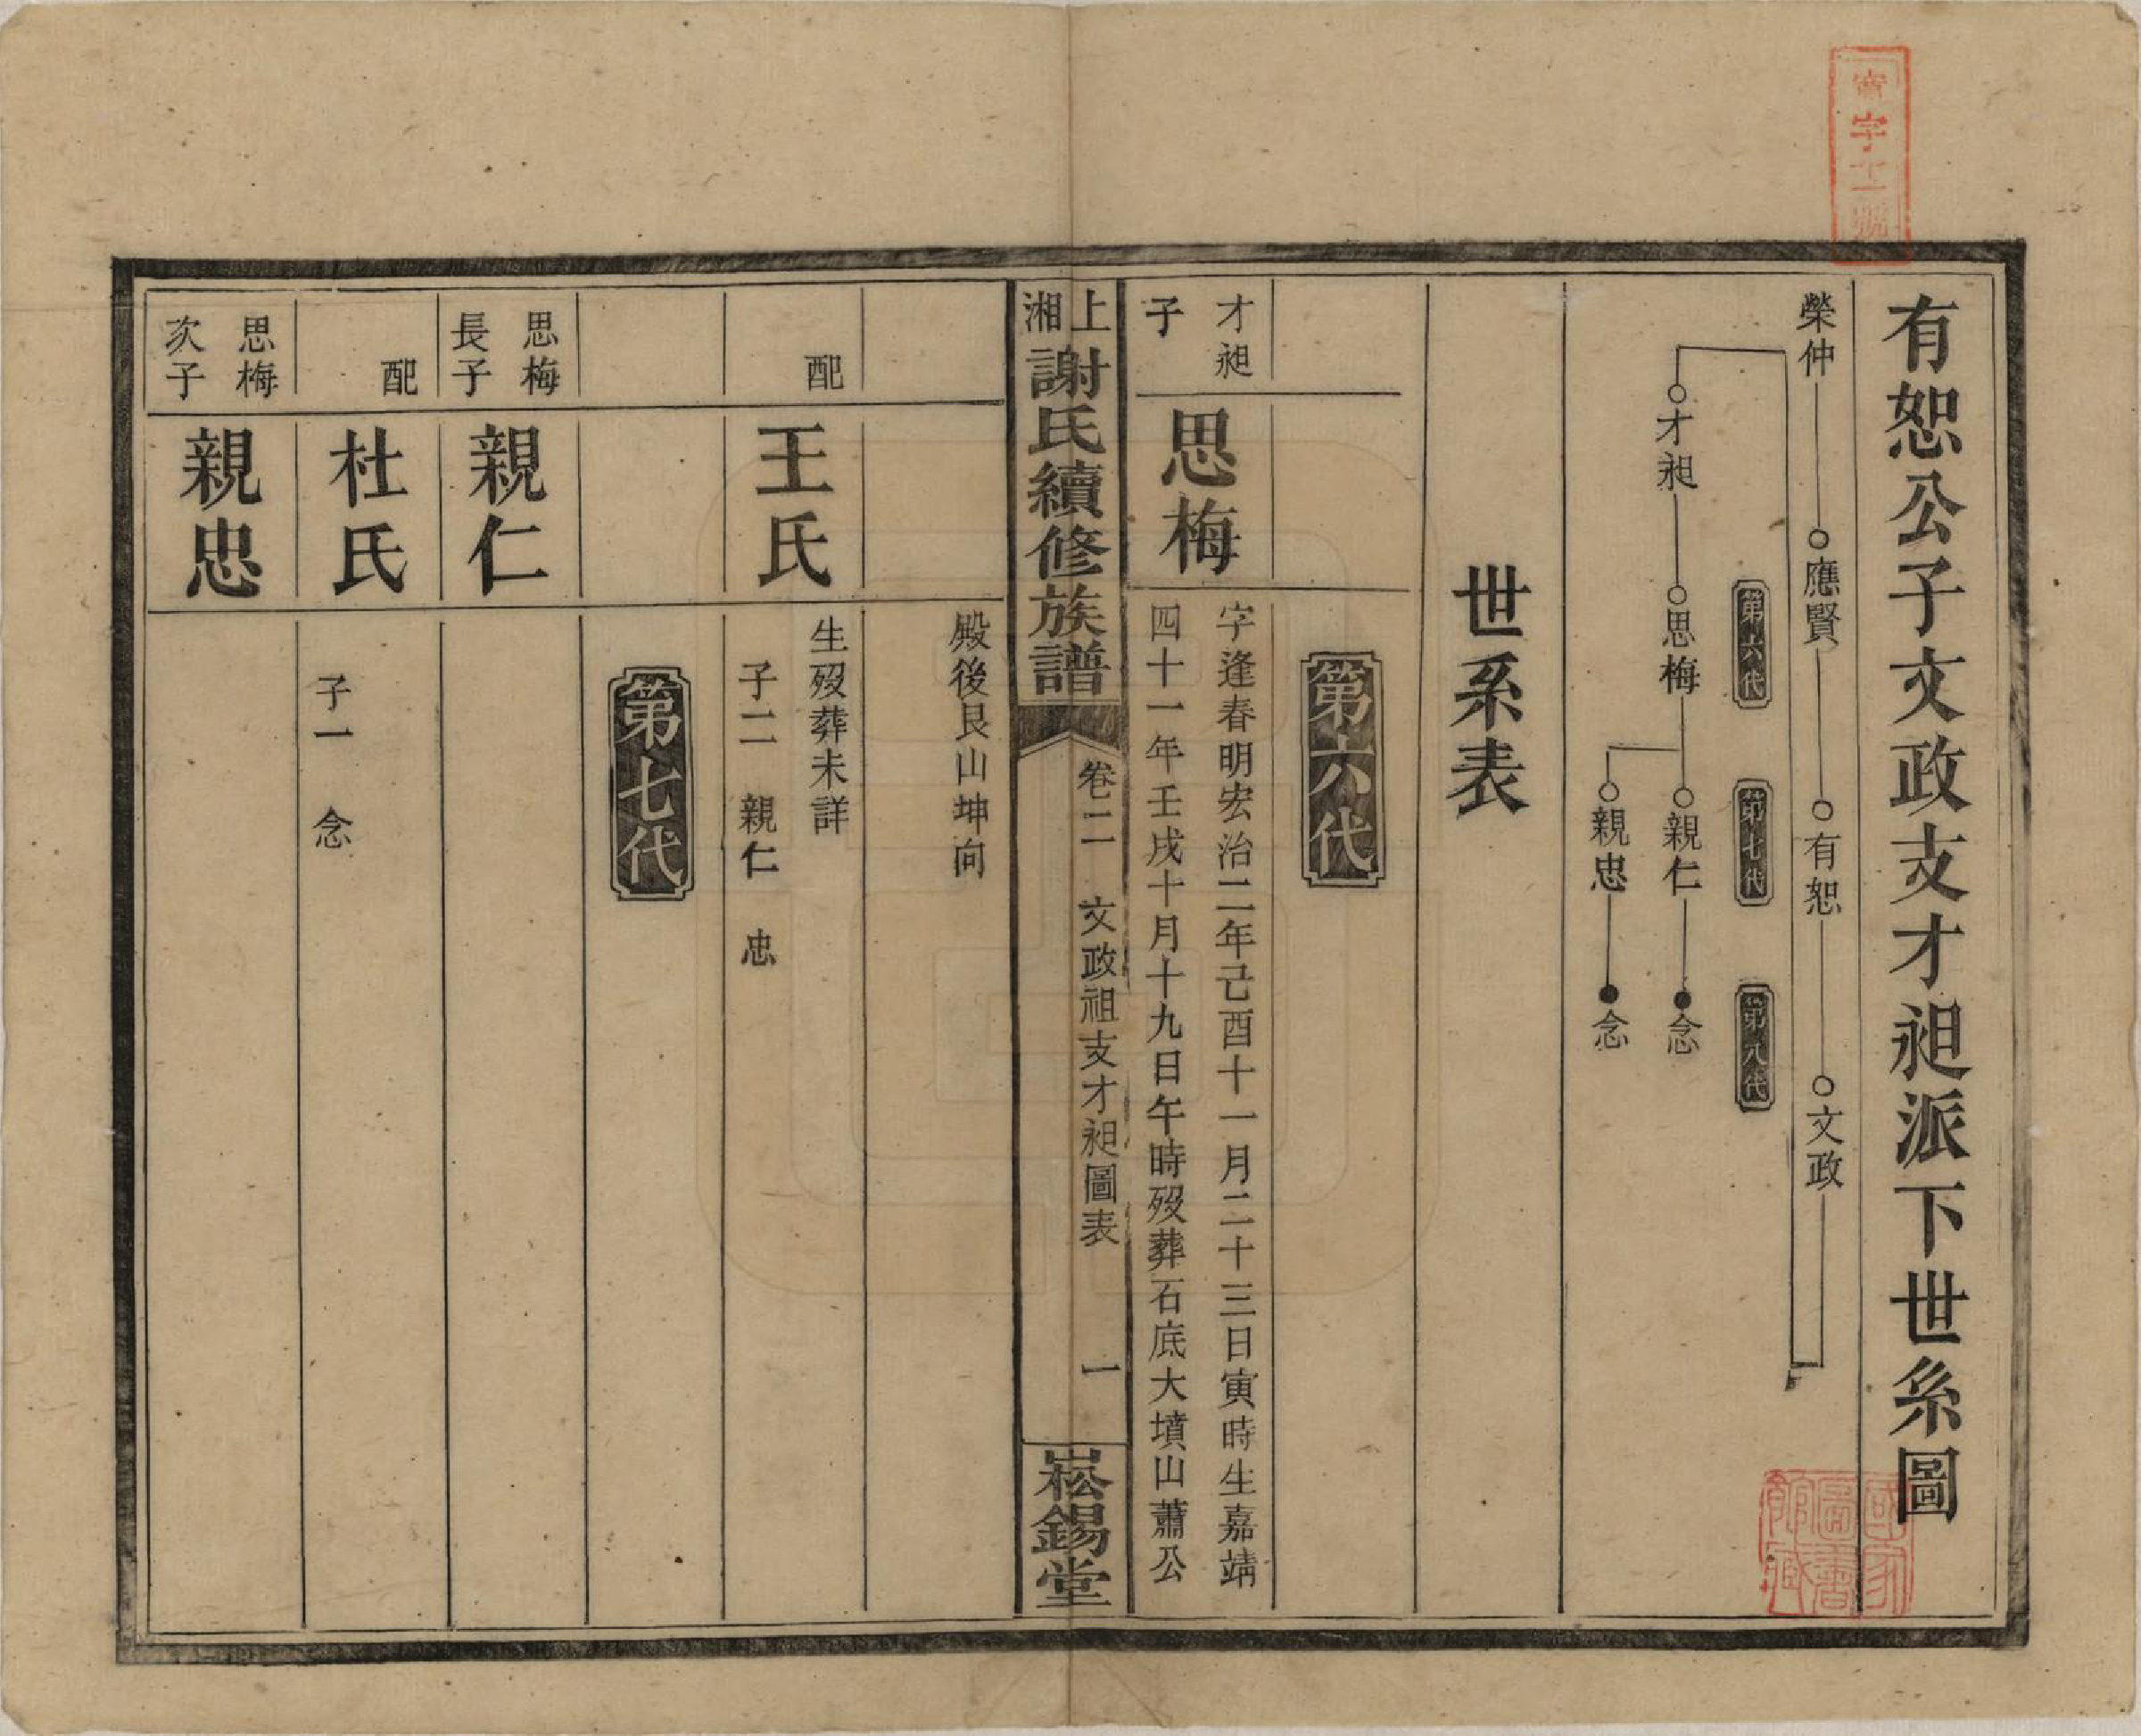 有恕公子文政支才昶派下世系圖
榮仲 應賢 有恕 文政
第六代 第七代 第八代
才昶 思梅 親仁 念
親忠 念
世系表
第六代
才昶
子
思梅
字逢春明宏治二年己酉十一月二十三日寅時生嘉靖
四十一年壬戌十月十九日午時殁葬石底大墳山蕭公
上湘謝氏續修族譜
卷二 文政祖支才昶圖表 一
崧錫堂
殿後艮山坤向
配
王氏
生殁葬未詳
子二 親仁 忠
第七代
思梅
長子
親仁
配
杜氏
子一 念
思梅
次子
親忠
字十一號
國家圖書館藏